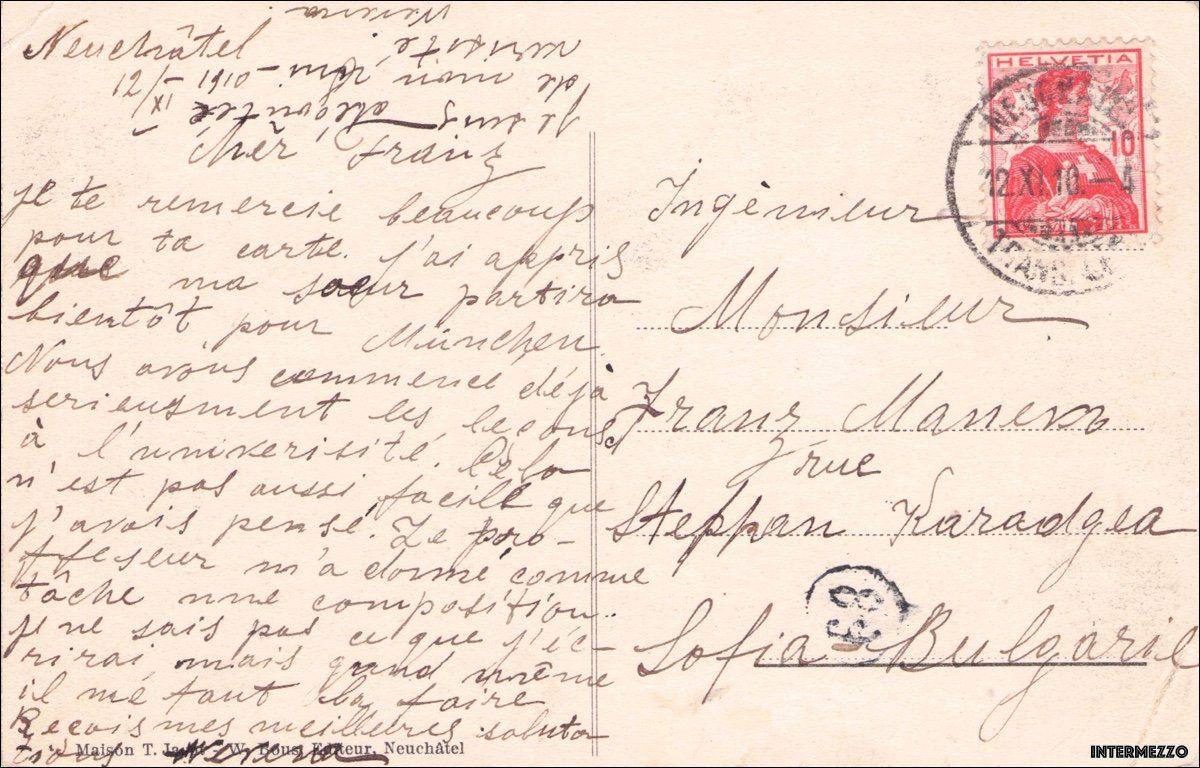 Neuchâtel
12/XI 1910
Cher Franz
Je te remercie beaucoup
pour ta carte. J'ai appris
que ma soeur partira
bientôt pour München.
Nous avons commencé déjà
serieusment les leçons
à l'univerisité. Cela
n'est pas aussi facile que
j'avais pensé. Le pro-
ffeseur m'a donné comme
tâche une composition.
Je ne sais pas ce que j'éc-
rirai mais quand même
il me faut la faire
Reçois mes meilleures saluta
tions Nevena
je suis
de mon
Nevena
Maison T. - W. Editeur, Neuchâtel
HELVETIA
10
12.XI.10.-4
Ingènieur
Monsieur
Franz Manew
rue
Steppan Karadgea
63
Sofia Bulgarie
INTERMEZZO